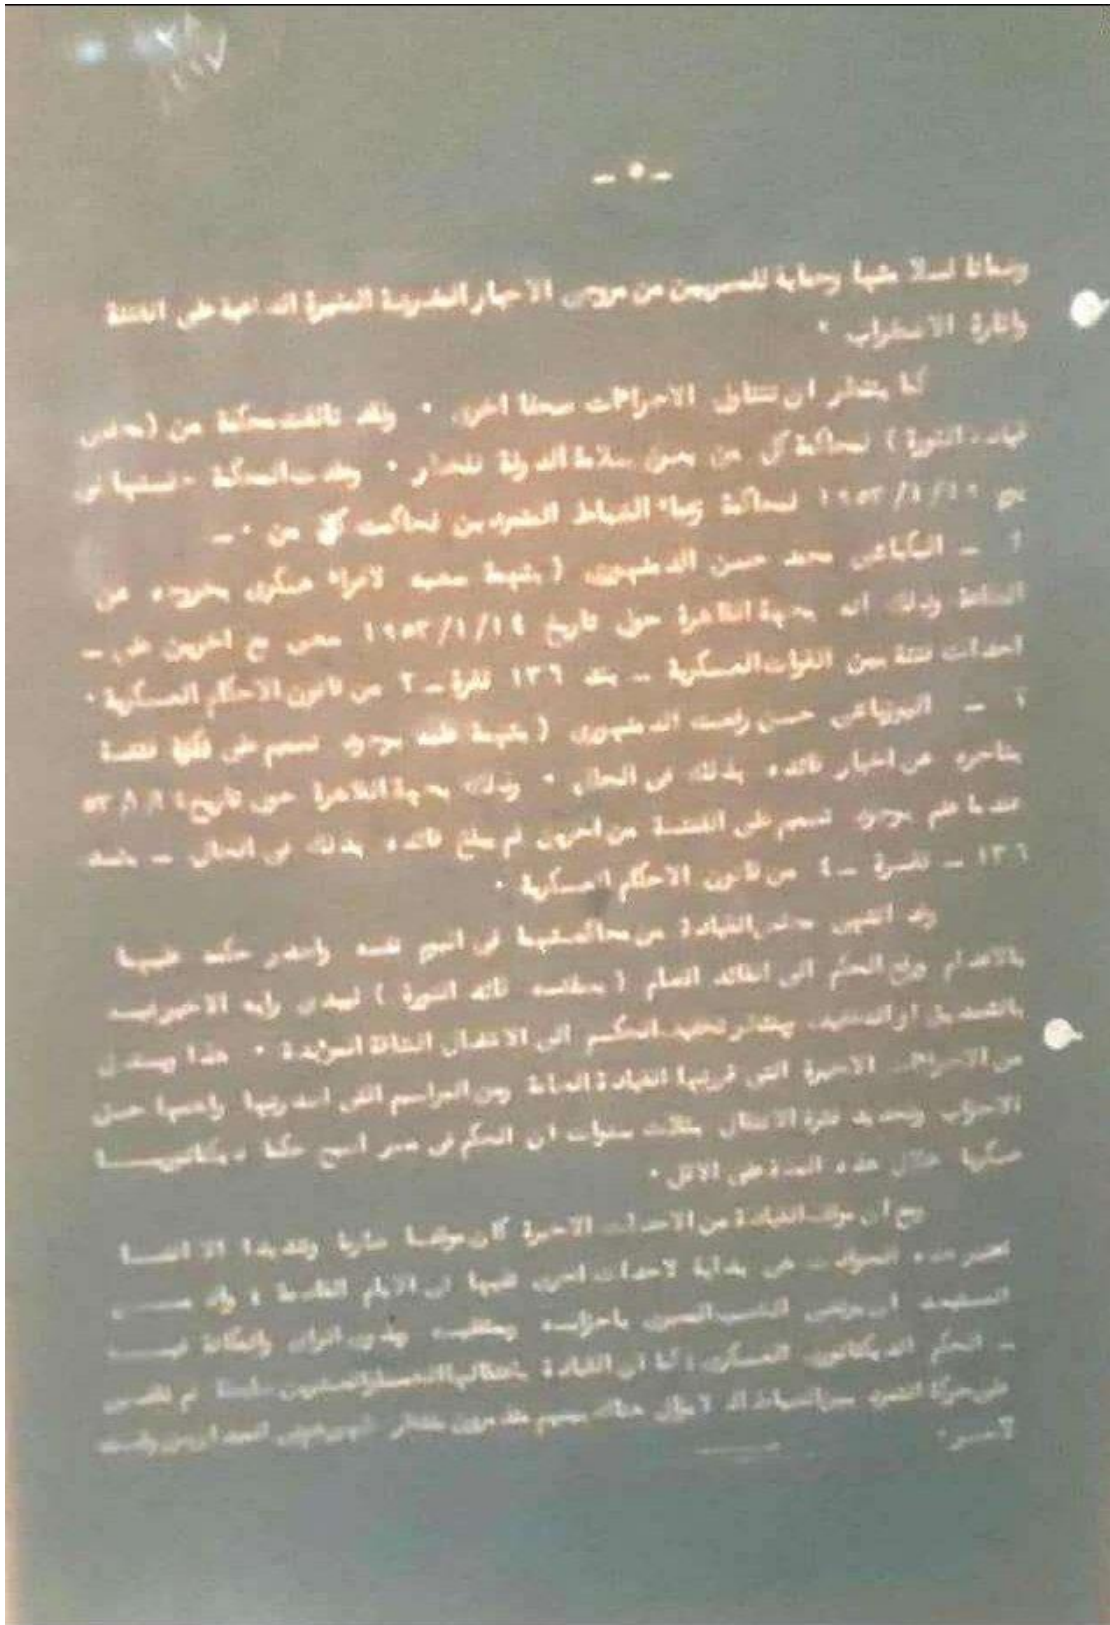 - ٥ -
وضمانا لسلامتها وحماية للمصريين من مروجي الاخبار المثيرة الداعية على الفتنة
واثارة الاضطراب .
كما ينتظر ان تتناول الاجراءات صحفا اخرى . وقد تالفت محكمة من (مجلس
قيادة الثورة) لمحاكمة كل من يعرض سلامة الدولة للخطر . وعقدت المحكمة جلستها في
لمحاكمة الضباط المتمردين فحاكمت كل من . -
- البكباشي محمد حسني الدمنهوري (بتهمة عسكرى بخروجه عن
الطاعة وذلك انه بمدينة القاهرة حول تاريخ ١٩٥٣/١/١٤ سعى مع اخرين على -
احداث فتنة بين القوات العسكرية - بند ١٣٦ فقرة - ٢ من قانون الاحكام العسكرية .
٢ - اليوزباشي حسن رفعت الدمنهوري (بتهمة علمه بوجود تصميم على فتنة
بتاخره عن اخبار قائده بذلك في الحال . وذلك بمدينة القاهرة حول تاريخ
عندما علم بوجود تصميم على الفتنة من اخرين لم يبلغ قائده بذلك في الحال - بند
١٣٦ - فقرة - ٤ من قانون الاحكام العسكرية .
وقد انتهى مجلس القيادة من محاكمتهما في اليوم نفسه واصدر حكمه عليهما
بالاعدام ورفع الحكم الى القائد العام (بصفته قائد الثورة) ليبدى رايه الاخير فيه
بالتصديق او التخفيف وينتظر تخفيف الحكم الى الاعتقال . هذا ويستدل
من الاجراءات الاخيرة التي قررتها القيادة العامة ومن المراسيم التي اصدرتها واهمها حل
الاحزاب وتحديد فترة الانتقال بثلاث سنوات ان الحكم في مصر اصبح حكما ديكتاتوريا
عسكريا خلال هذه المدة على الاقل .
ومع ان موقف القيادة من الاحداث الاخيرة كان موقفا وشديدا الا
هذه هي بداية لاحداث اخرى في الايام القادمة ،
ان يرضى الشعب المصرى باحزابه وذوى الراى والمكانة فيه
- الحكم الديكتاتورى العسكرى ، كما ان القيادة لم تقض
على حركة التمرد بين الضباط اذ لا يزال هناك